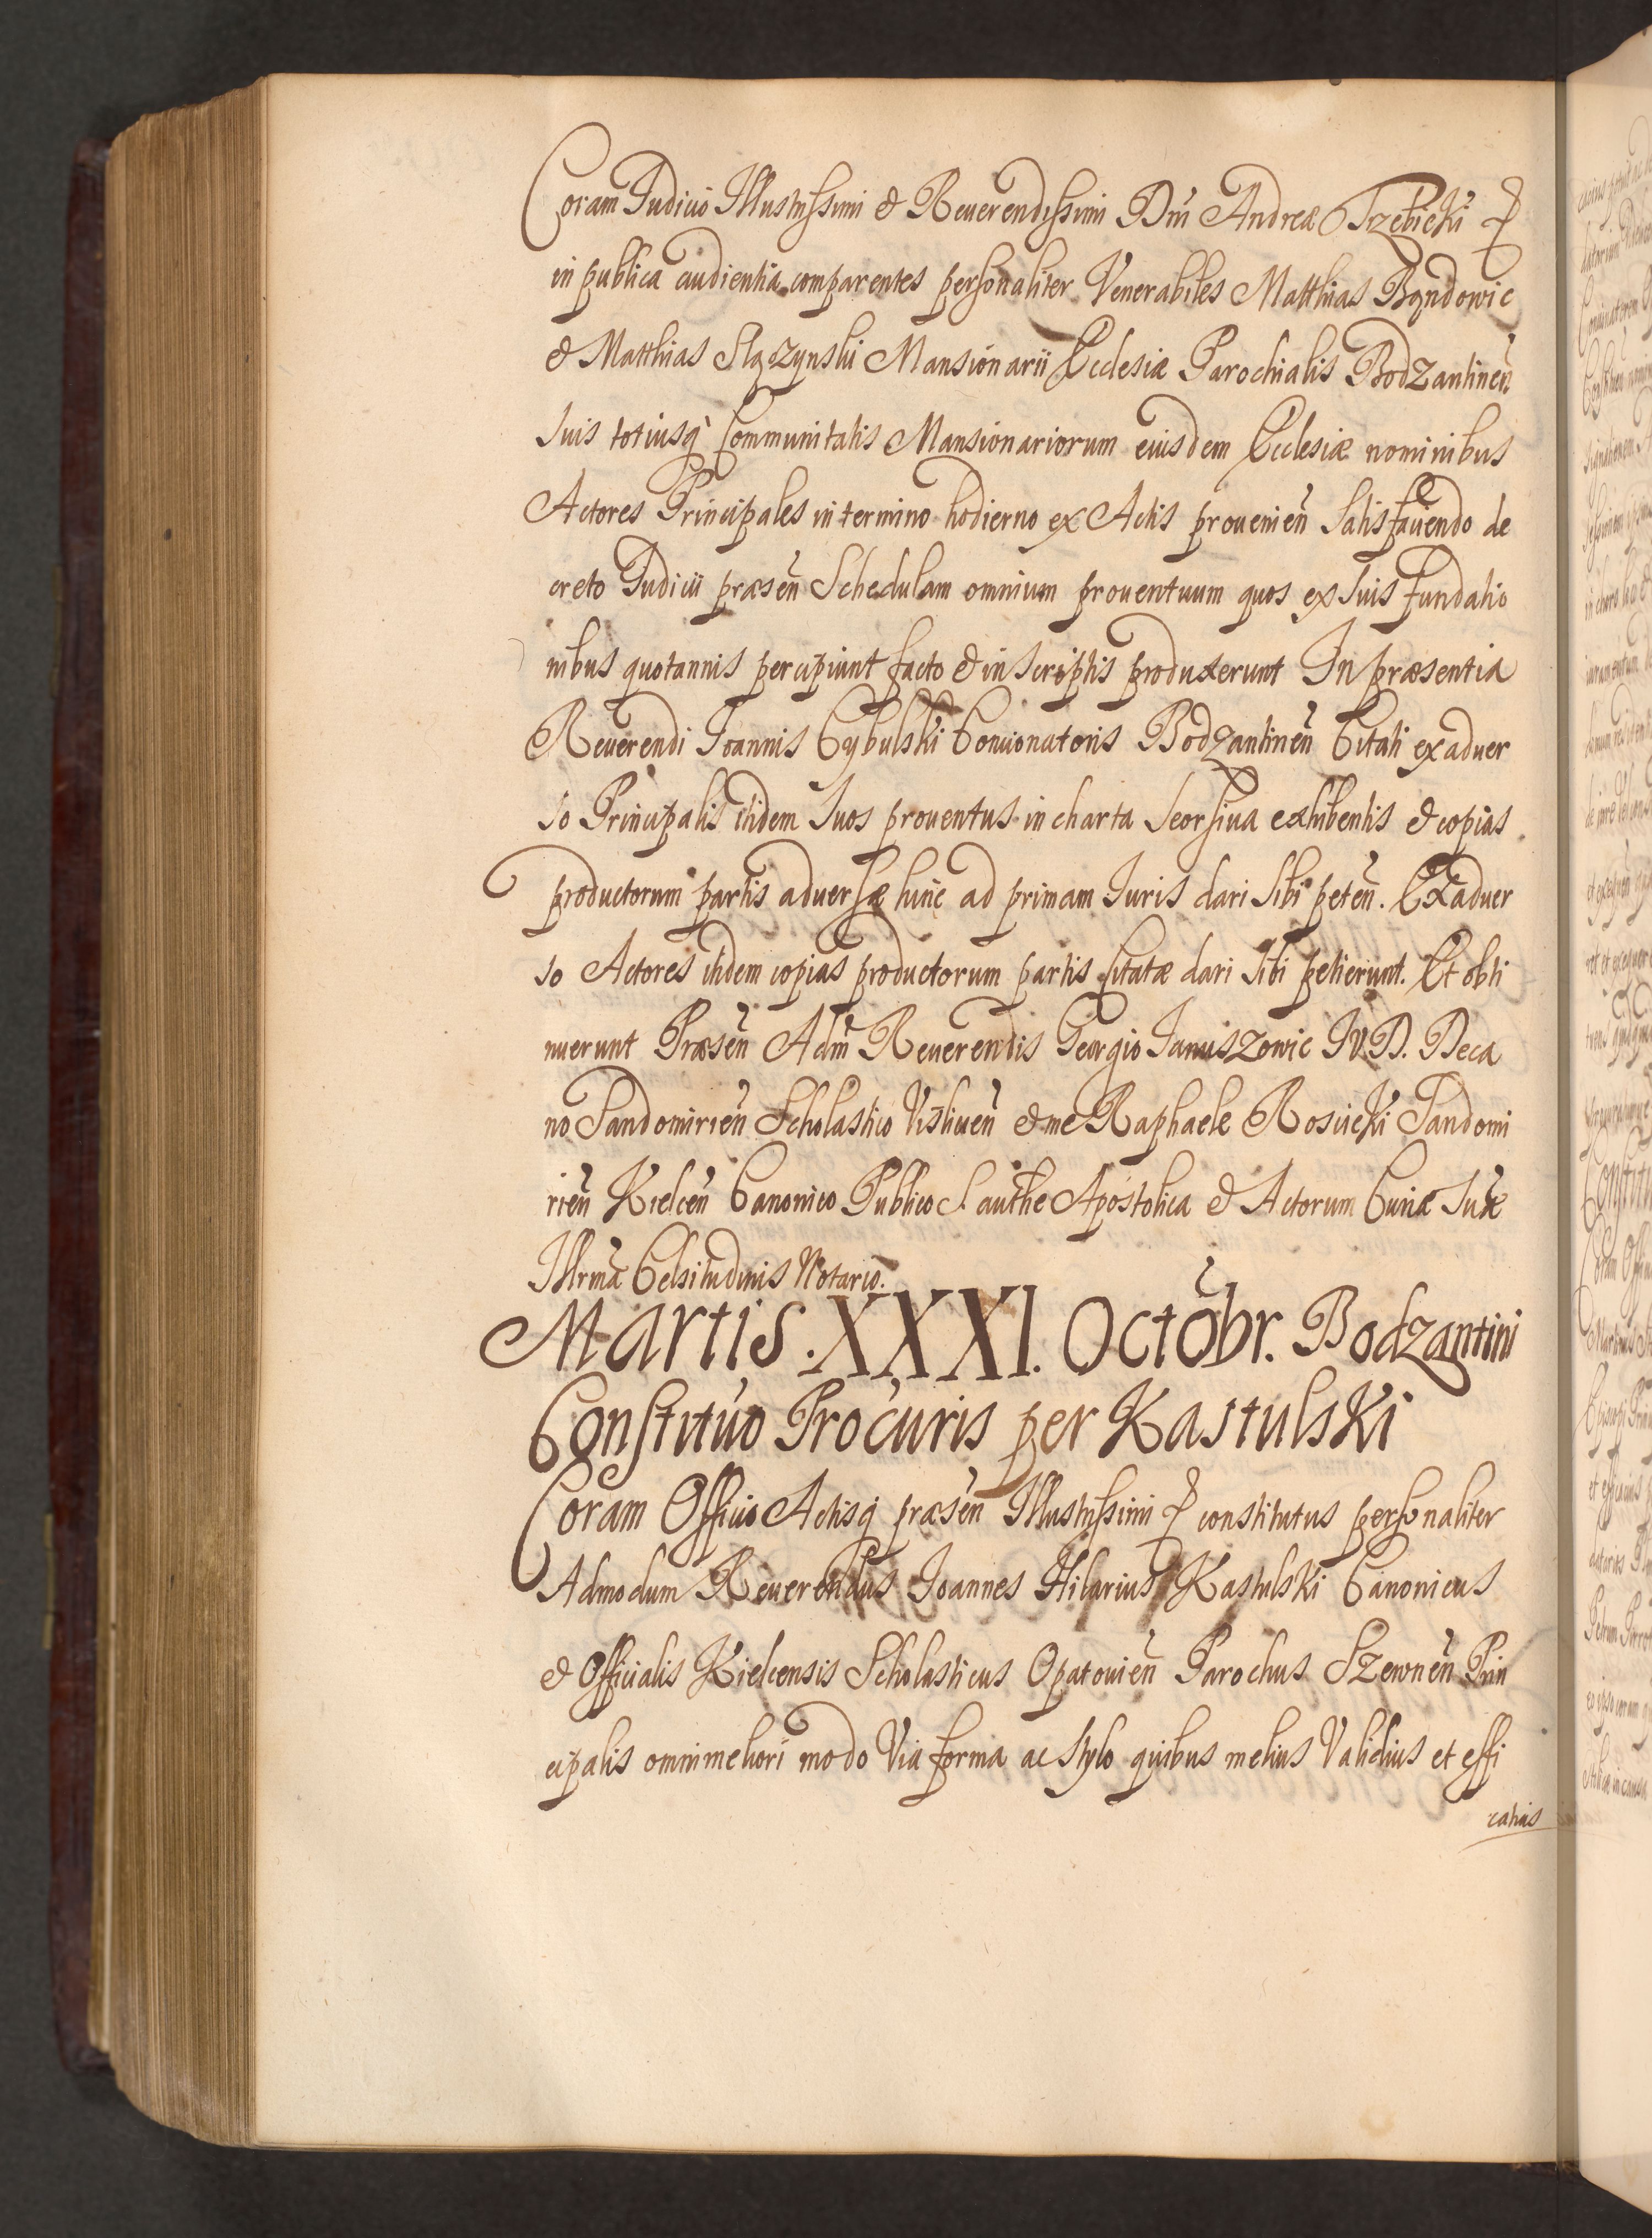 Coram Judicio Illustrissimi & Reuerendissimi Dni Andreæ Trzebicki &
in publica audientia comparentes personaliter Venerabiles Matthias Bąndowic
& Matthias Slązynski Mansionarii Ecclesiæ Parochialis Bodzantineñ
suis totiusq Communitatis Mansionariorum eiusdem Ecclesiæ nominibus
Actores Principales in termino hodierno ex Actis prouenieñ satisfaciendo de
creto Judicii præseñ Schedulam omnium prouentuum quos ex suis fundatio
nibus quotannis percipiunt facto & in scriptis produxerunt In præsentia
Reuerendi Joannis Cybulski Concionatoris Bodzantineñ Citati ex aduer
so Principalis itidem suos prouentus in charta seorsiua exhibentis & copias
productorum partis aduersæ hinc ad primam Juris dari sibi peteñ. Ex aduer
so Actores itidem copias productorum partis citatæ dari sibi petierunt. Et obti
nuerunt Præseñ Adm̃ Reuerendis Georgio Januiszowic JV.D. Deca
no Sandomirieñ Scholastico Visliceñ & me Raphaele Rosiicki Sandomi
rieñ Kielceñ Canonico Publico S. authe Apostolica & Actorum Curiæ Suæ
Illrmæ Celsitudinis Notario.
Martis. XXXI. Octobr. Bodzantini
Constitutio Procuris per Kastulski
Coram Officio Actisq præseñ Illustrissimi & constitutus personaliter
Admodum Reuerendus Joannes Hilarius Kastulski Canonicus
& Officialis Kielcensis Scholasticus Opatouieñ Parochus Szewneñ Prin
cipalis omni meliori modo via forma ac stylo quibus melius validius et effi
catius